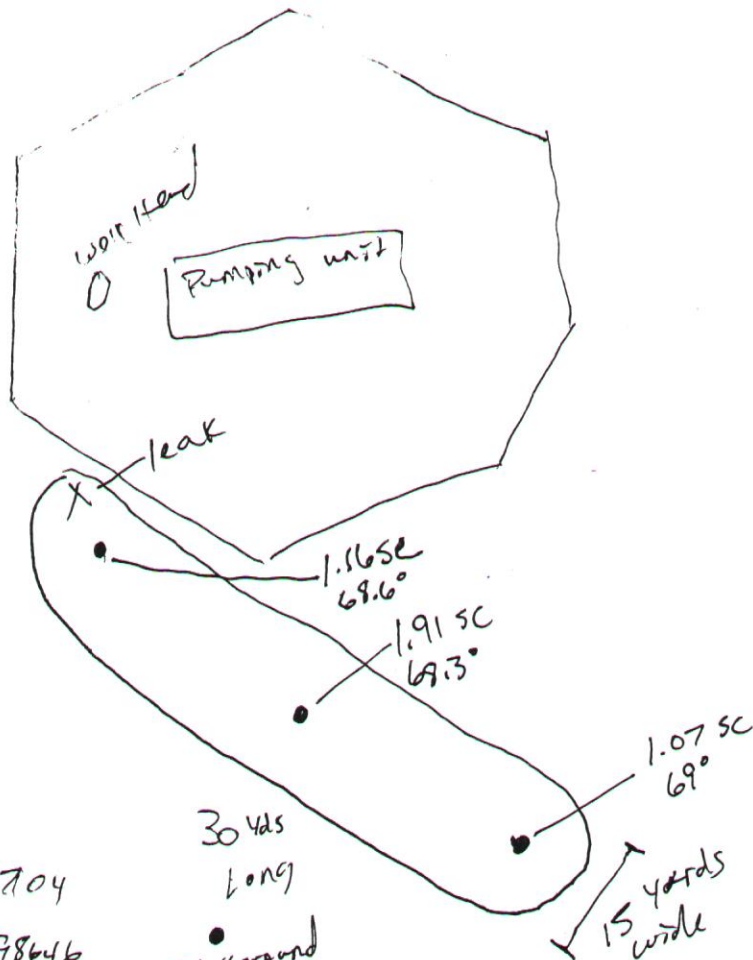 well Head
Pumping unit
leak
X
1.56 SC
68.6°
1.91 SC
68.3°
1.07 SC
69°
30 yds
Long
15 yards
wide